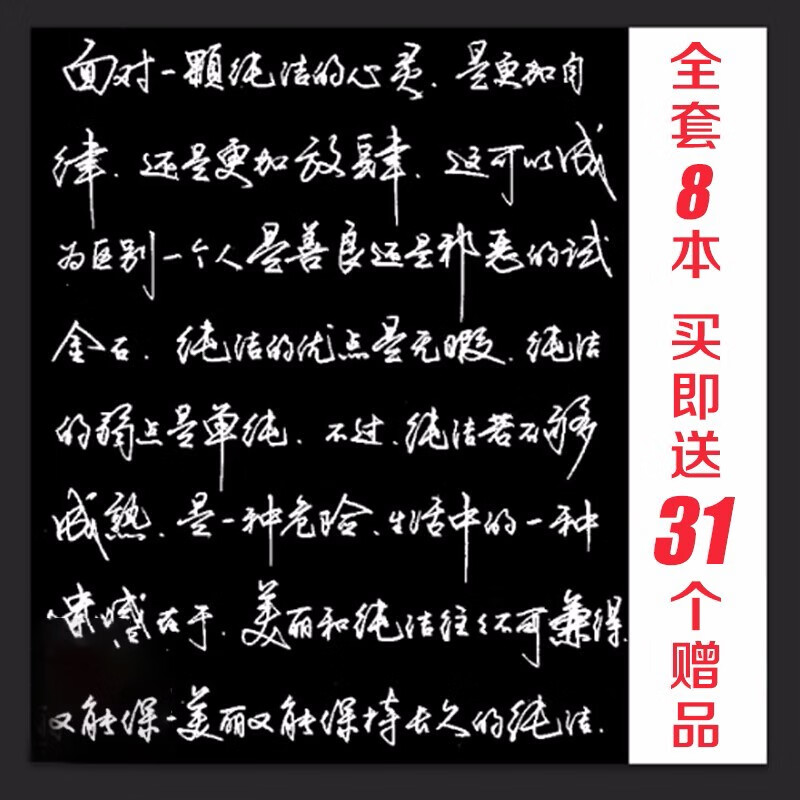 面对一颗纯洁的心灵.是更加自
律.还是更加放肆.这可以成
为区别一个人是善良还是邪恶的试
金石.纯洁的优点是无暇.纯洁
的弱点是单纯.不过.纯洁若不够
成熟.是一种危险.生活中的一种
遗憾在于.美丽和纯洁往往不可兼得.
又能保美丽又能保持长久的纯洁.
全套8本 买即送31个赠品